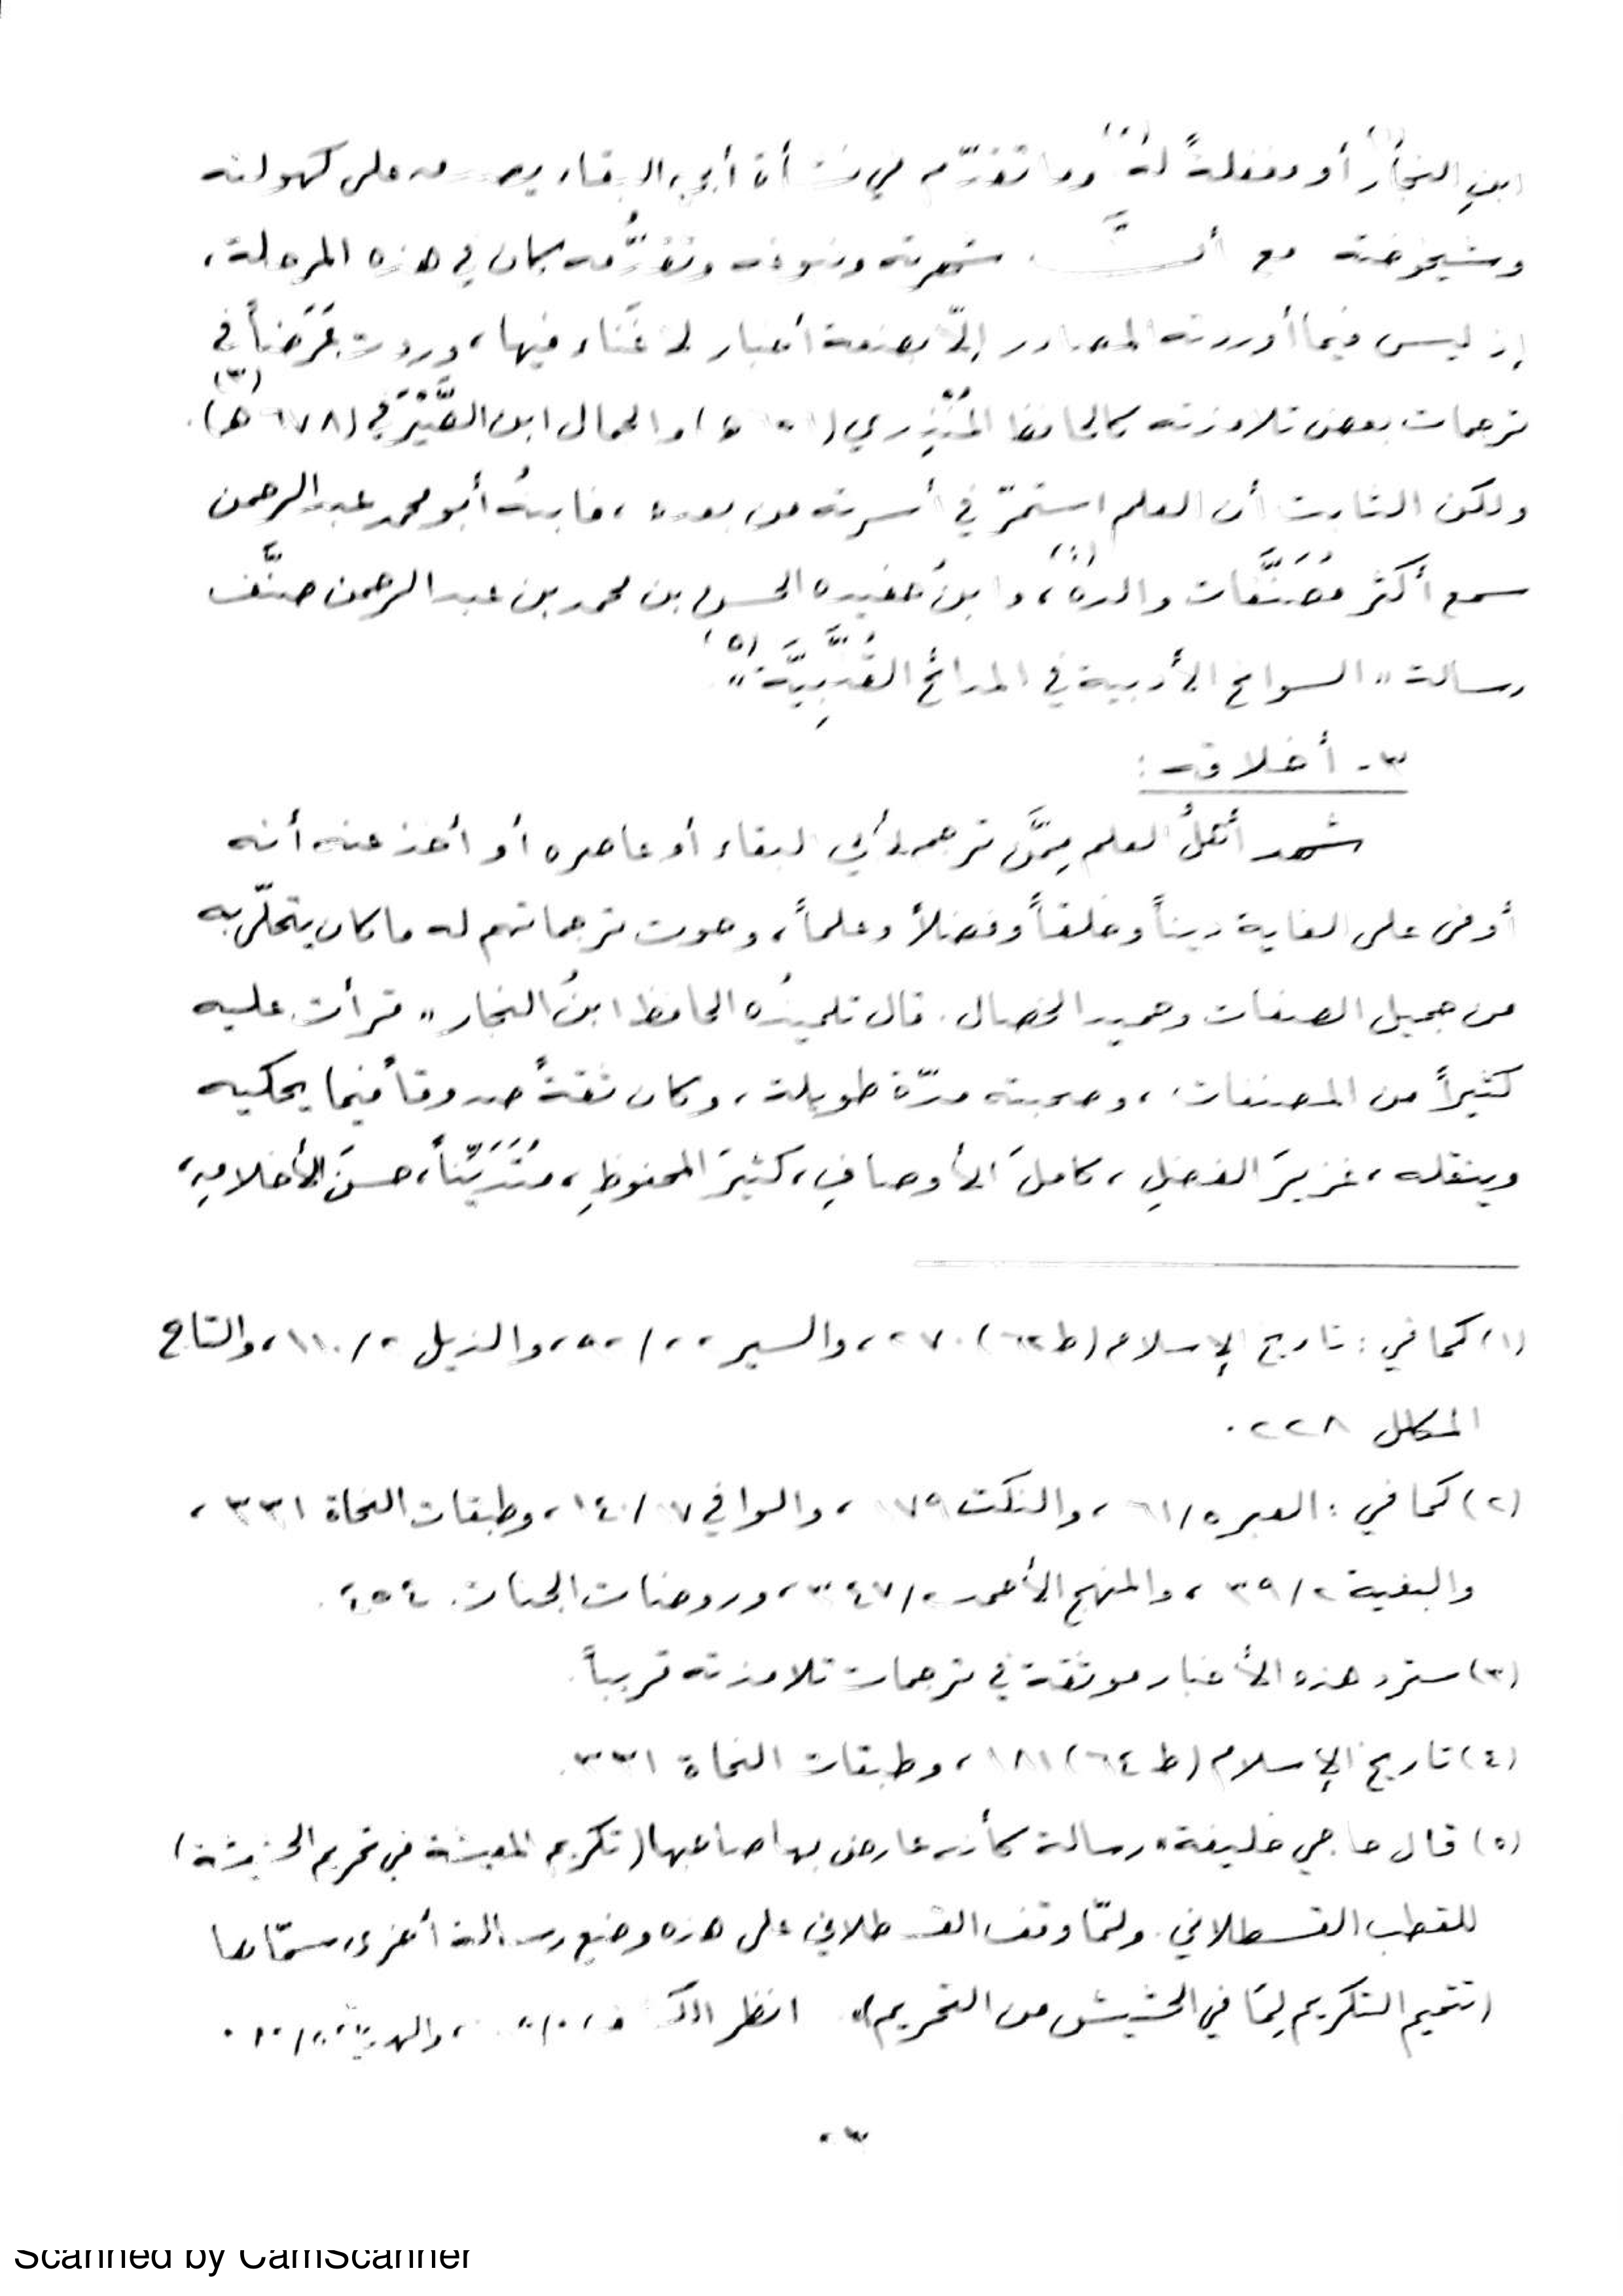 ابنِ النجار(١) أو مغفلةً له(٢) وما تقدّم في نشأة أبي البقاء يصدق على كهولته
وشيخوخته مع أنَّ شهرته ونبوغه وتقدُّمه كان في هذه المرحلة،
إذ ليس فيما أوردته المصادر إلّا بضعة أخبار لا غَناء فيها، وردت عَرَضاً في
ترجمات بعض تلامذته كالحافظ المُنْذِري (٦٥٦ هـ) والجمال ابن الصَّيْرَفي (٦٧٨ هـ)(٣).
ولكن الثابت أن العلم استمرّ في أسرته من بعده، فابنهُ أبو محمد عبد الرحمن
سمع أكثر مُصَنَّفات والده(٤)، وابنُ حفيده الحسن بن محمد بن عبد الرحمن صنَّف
رسالة "السوانح الأدبية في المدائح القُنَّبِيَّة"(٥).
٣- أخلاقه:
شهد أهلُ العلم مِمَّن ترجم لأبي البقاء أو عاصره أو أخذ عنه أنه
أوفى على الغاية ديناً وخلقاً وفضلاً وعلماً، وحوت ترجماتهم له ما كان يتحلّى به
من جميل الصفات وحميد الخصال. قال تلميذُه الحافظ ابنُ النجار "قرأت عليه
كثيراً من المصنفات، وصحبته مدّة طويلة، وكان ثقةً صدوقاً فيما يحكيه
وينقله، غزيرَ الفضلِ، كاملَ الأوصافِ، كثيرَ المحفوظِ، مُتَدَيِّناً، حسنَ الأخلاقِ،
(١) كما في: تاريخ الإسلام (ط ٦٢)، والسير، والذيل ٢/١١٠، والتاج
المكلل ٢٢٨.
(٢) كما في: العبر ٥/٦١، والنكت ١٧٩، والوافي ١٧/١٤٠، وطبقات النحاة ٣٣١،
والبغية ٢/٣٩، والمنهج الأحمد ٢/٣٤٧، وروضات الجنات ٤٥٤.
(٣) سترد هذه الأخبار موثقة في ترجمات تلامذته قريباً.
(٤) تاريخ الإسلام (ط ٦٤) ١٨١، وطبقات النحاة ٣٣١.
(٥) قال حاجي خليفة "رسالة كأنه عارض بها صاحبها (تكريم المعيشة في تحريم الحشيشة)
للقطب القسطلاني. ولمّا وقف القسطلاني على هذه وضع رسالة أخرى سمّاها
(تتميم التكريم لِمَا في الحشيش من التحريم)". انظر الكشف